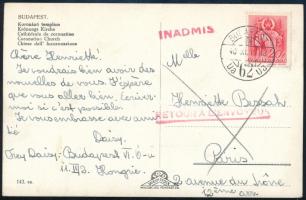 BUDAPEST.
Koronázó templom
Krönungs Kirche
Cathédrale de couronnation
Coronation Church
Chiesa dell' incoronazione
INADMIS
BUDAPEST
72
Chère Henriette.
Je voudrais bien avoir des
nouvelles de vous. J'espère
que vous allez bien. Ecrivez-
moi si c'est possible.
Je vous embrasse avec ami-
tié
Daisy.
Frey Daisy. Budapest VI. 6-u
11. II/3. Hongrie.
Melle
Henriette Bessah.
RETOUR A L'ENVOYEUR
Paris
2 avenue du Trône
12ème arr.
143. sz.